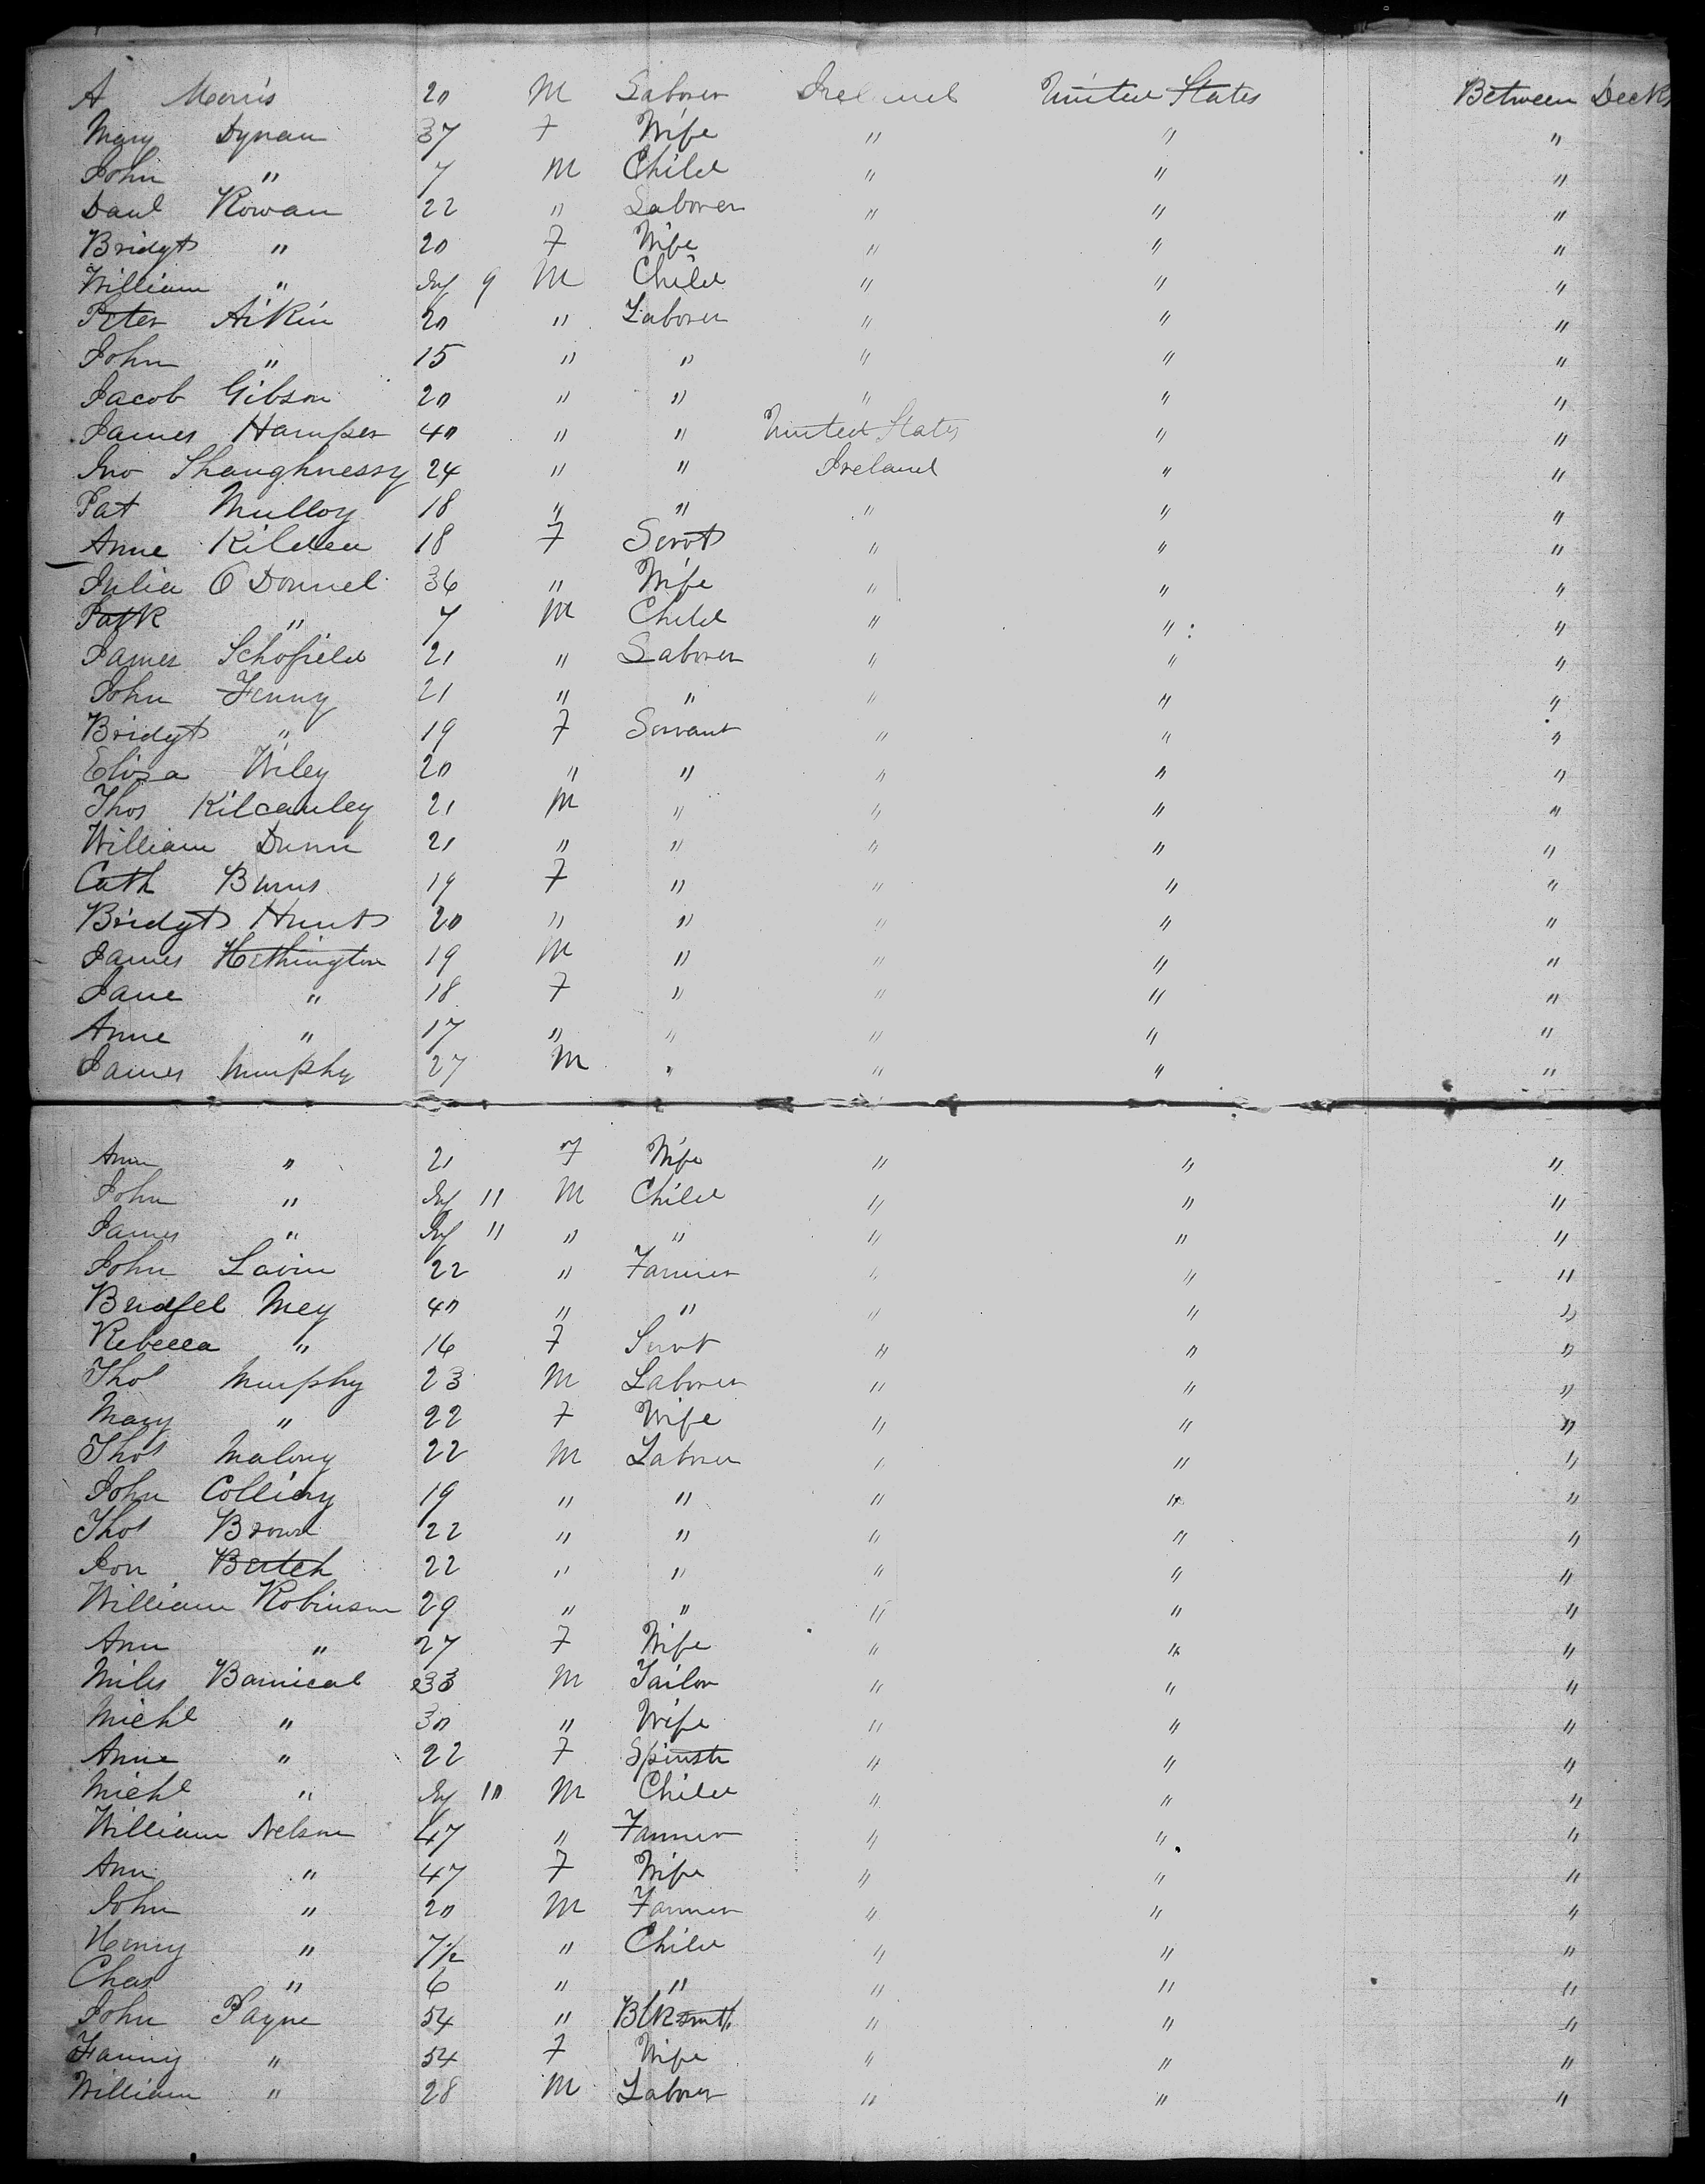 A Morris 20 M Laborer Ireland United States Between Decks
Mary Dynan 37 F Wife " " "
John " 7 M Child " " "
Danl Rowan 22 " Laborer " " "
Bridgt " 20 F Wife " " "
William " Inf 9 M Child " " "
Peter Aikin 20 " Laborer " " "
John " 15 " " " " "
Jacob Gibson 20 " " " " "
James Hamper 40 " " United States " "
Jno Shaughnessy 24 " " Ireland " "
Pat Mulloy 18 " " " " "
Anne Kilden 18 F Servt " " "
Julia O Donnel 36 " Wife " " "
Patk " 7 M Child " " "
James Schofield 21 " Laborer " " "
John Fenny 21 " " " " "
Bridgt " 19 F Servant " " "
Eliza Wiley 20 " " " " "
Thos Kilcauley 21 M " " " "
William Dunn 21 " " " " "
Cath Burns 19 F " " " "
Bridgt Hunt 20 " " " " "
James Hethington 19 M " " " "
Jane " 18 F " " " "
Anne " 17 " " " " "
James Murphy 27 M " " " "
Ann " 21 F Wife " " "
John " Inf 11 M Child " " "
James " Inf 11 " " " " "
John Lavin 22 " Farmer " " "
Mey 40 " " " " "
Rebecca " 16 F Servt " " "
Thos Murphy 23 M Laborer " " "
Mary " 22 F Wife " " "
Thos Malony 22 M Laborer " " "
John 19 " " " " "
Thos Brown 22 " " " " "
22 " " " " "
William Robinson 29 " " " " "
Ann " 27 F Wife " " "
Miles Barnical 33 M Tailor " " "
Michl " 30 " Wife " " "
Anne " 22 F Spinstr " " "
Michl " Inf 10 M Child " " "
William Nelson 47 " Farmer " " "
Ann " 47 F Wife " " "
John " 20 M Farmer " " "
Henry " 7½ " Child " " "
Chas " 6 " " " " "
John Payne 54 " Blksmth " " "
Fanny " 54 F Wife " " "
William " 28 M Laborer " " "